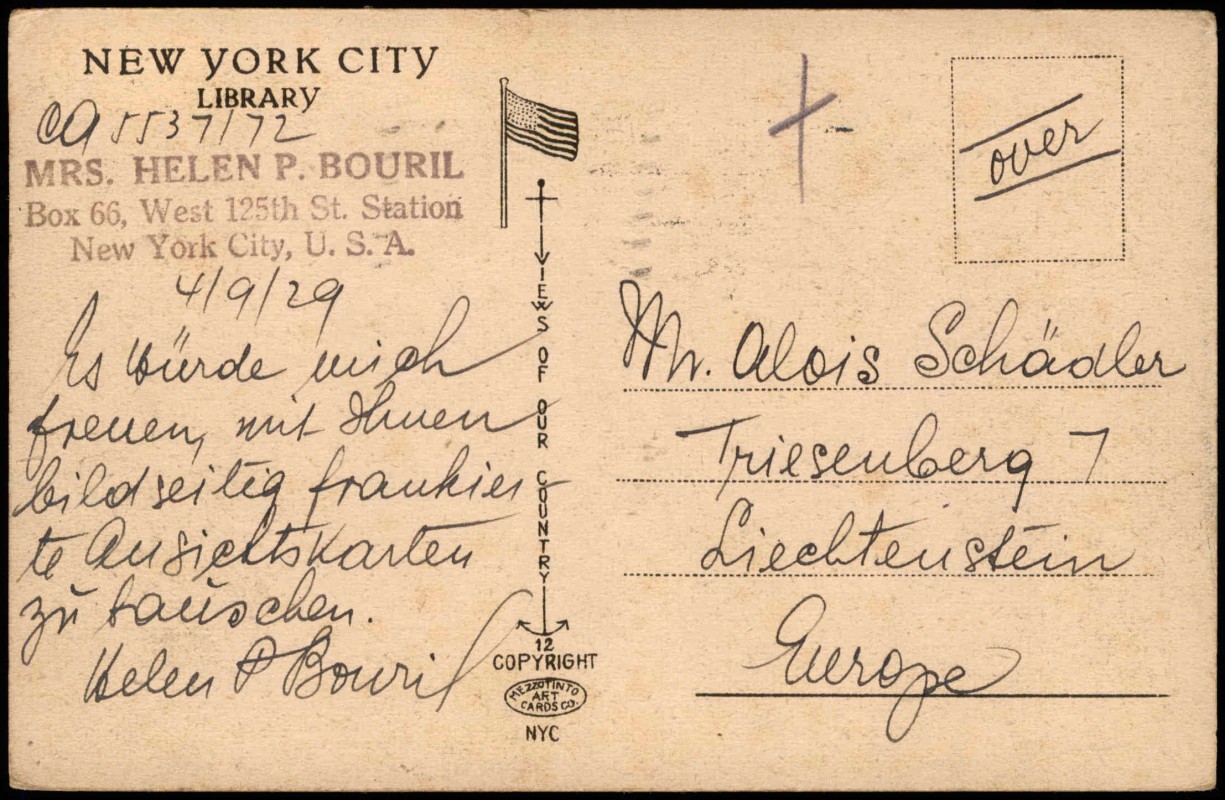 NEW YORK CITY
LIBRARY
CA 5537/72
MRS. HELEN P. BOURIL
Box 66, West 125th St. Station
New York City, U. S. A.
4/9/29
Es würde mich
freuen, mit Ihnen
bildseitig frankier-
te Ansichtskarten
zu tauschen.
Helen P Bouril
VIEWS OF OUR COUNTRY
12
COPYRIGHT
MEZZOTINTO
ART
CARDS CO.
NYC
over
Mr. Alois Schädler
Triesenberg 7
Liechtenstein
Europe